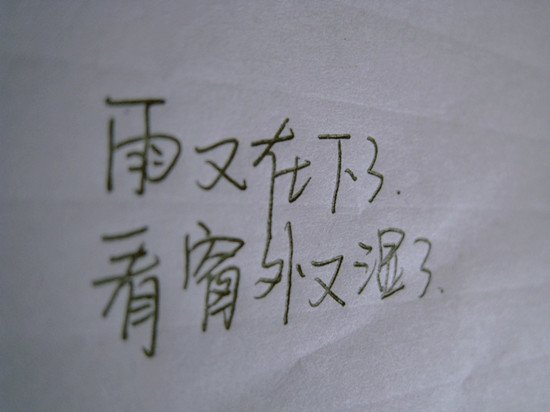 雨又在下了.
看窗外又湿了.